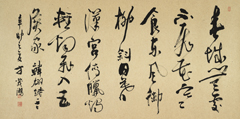 春城無處
不飛花寒
食東風御
柳斜日暮
漢宮傳蠟
燭輕煙散入五
侯家